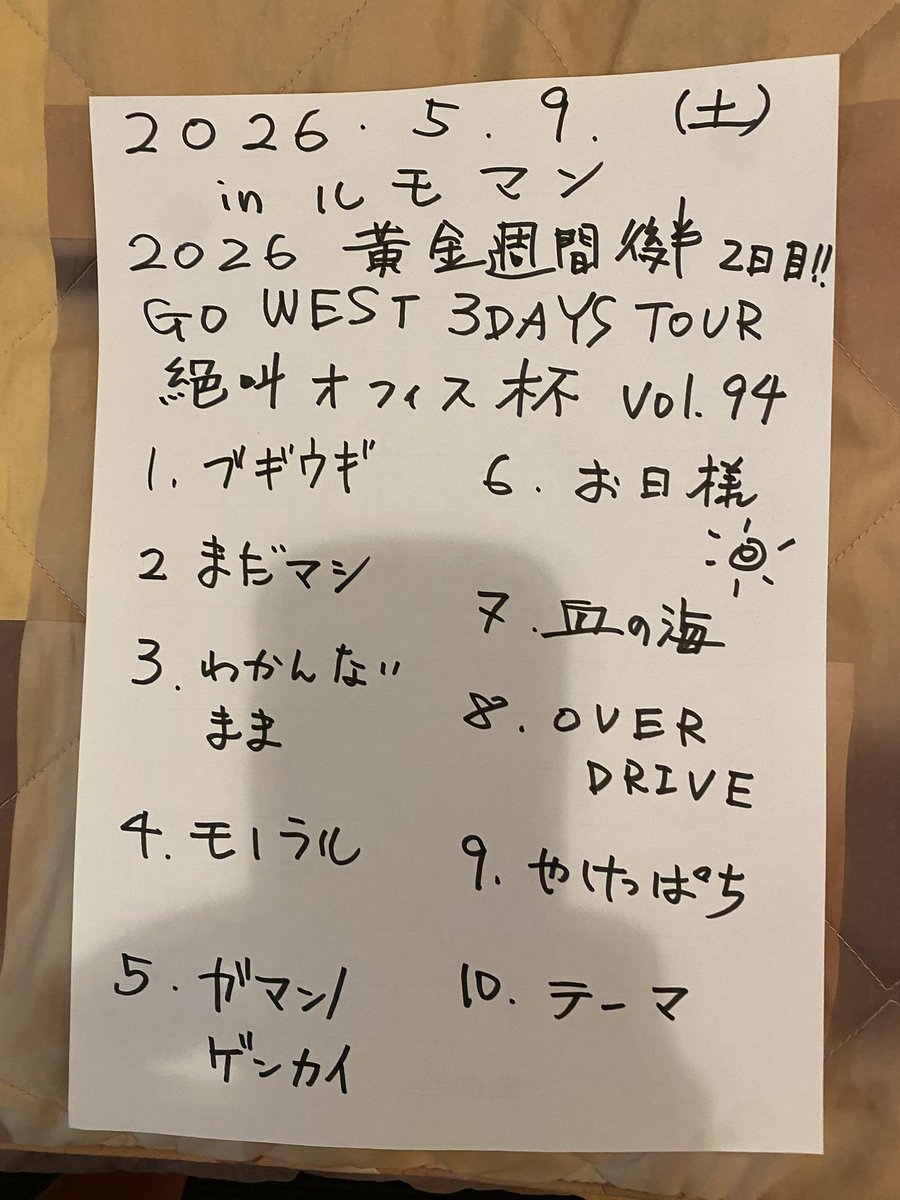 2026.5.9.(土)
in ルモマン
2026 黄金週間後半 2日目!!
GO WEST 3DAYS TOUR
絶叫オフィス杯 Vol.94
1. ブギウギ
2 まだマシ
3. わかんない
まま
4. モーラル
5. ガマン/
ゲンカイ
6. お日様
7. 血の海
8. OVER
DRIVE
9. やけっぱち
10. テーマ